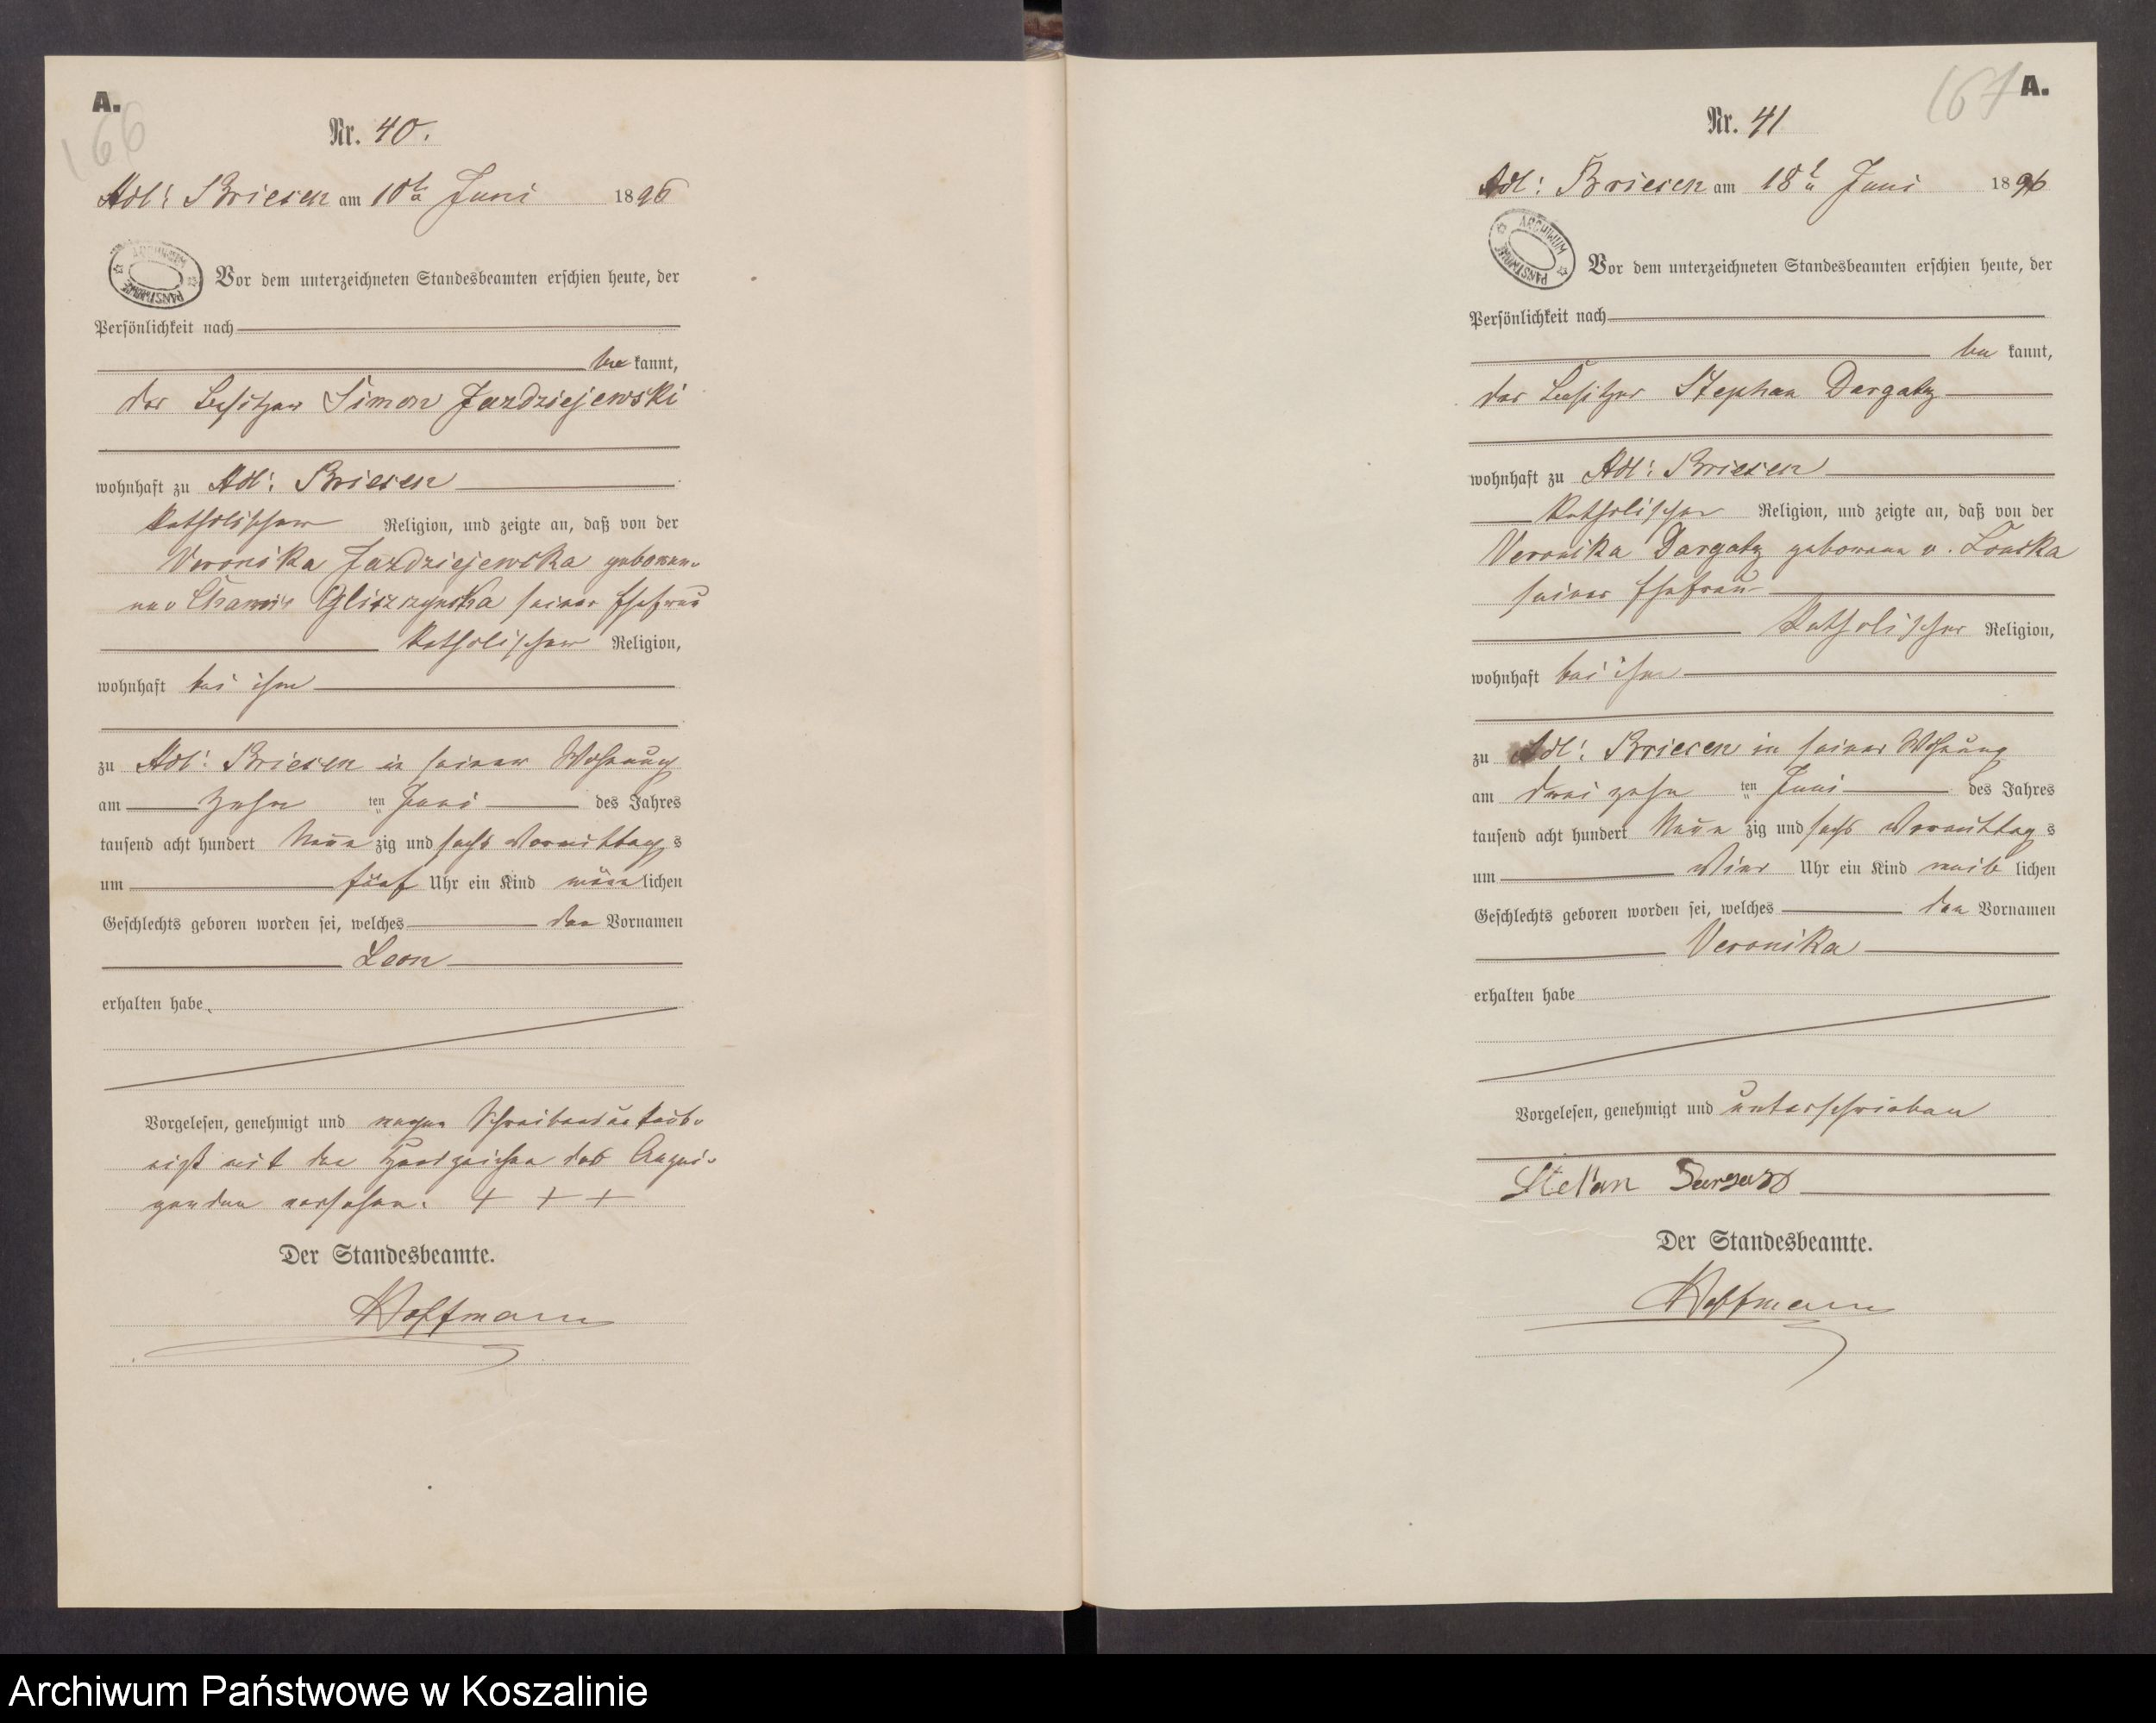 A.
166
Nr. 40.
Adl: Briesen am 10t Juni 1896
ARCHIWUM PAŃSTWOWE
Vor dem unterzeichneten Standesbeamten erschien heute, der
Persönlichkeit nach
be kannt,
der Besitzer Simon Jazdziejewski
wohnhaft zu Adl: Briesen
katholischer Religion, und zeigte an, daß von der
Veronika Jazdziejewska geborene
Gliszczynska seiner Ehefrau
katholischer Religion,
wohnhaft bei ihm
zu Adl: Briesen in seiner Wohnung
am zehn ten Juni des Jahres
tausend acht hundert Neun zig und sechs Vormittag s
um fünf Uhr ein Kind männ lichen
Geschlechts geboren worden sei, welches den Vornamen
Leon
erhalten habe.
Vorgelesen, genehmigt und wegen Schreibensunkund-
mit den Handzeichen des Anzei-
genden versehen. + + +
Der Standesbeamte.
Hoffmann
167
A.
Nr. 41
Adl: Briesen am 18t Juni 1896
ARCHIWUM PAŃSTWOWE
Vor dem unterzeichneten Standesbeamten erschien heute, der
Persönlichkeit nach
be kannt,
der Besitzer Stephan Dargatz
wohnhaft zu Adl: Briesen
katholischer Religion, und zeigte an, daß von der
Veronika Dargatz geborene v. Lonska
seiner Ehefrau
katholischer Religion,
wohnhaft bei ihm
zu Adl: Briesen in seiner Wohnung
am drei zehn ten Juni des Jahres
tausend acht hundert Neun zig und sechs Vormittag s
um Vier Uhr ein Kind weib lichen
Geschlechts geboren worden sei, welches den Vornamen
Veronika
erhalten habe
Vorgelesen, genehmigt und unterschrieben
Stefan
Der Standesbeamte.
Hoffmann
Archiwum Państwowe w Koszalinie